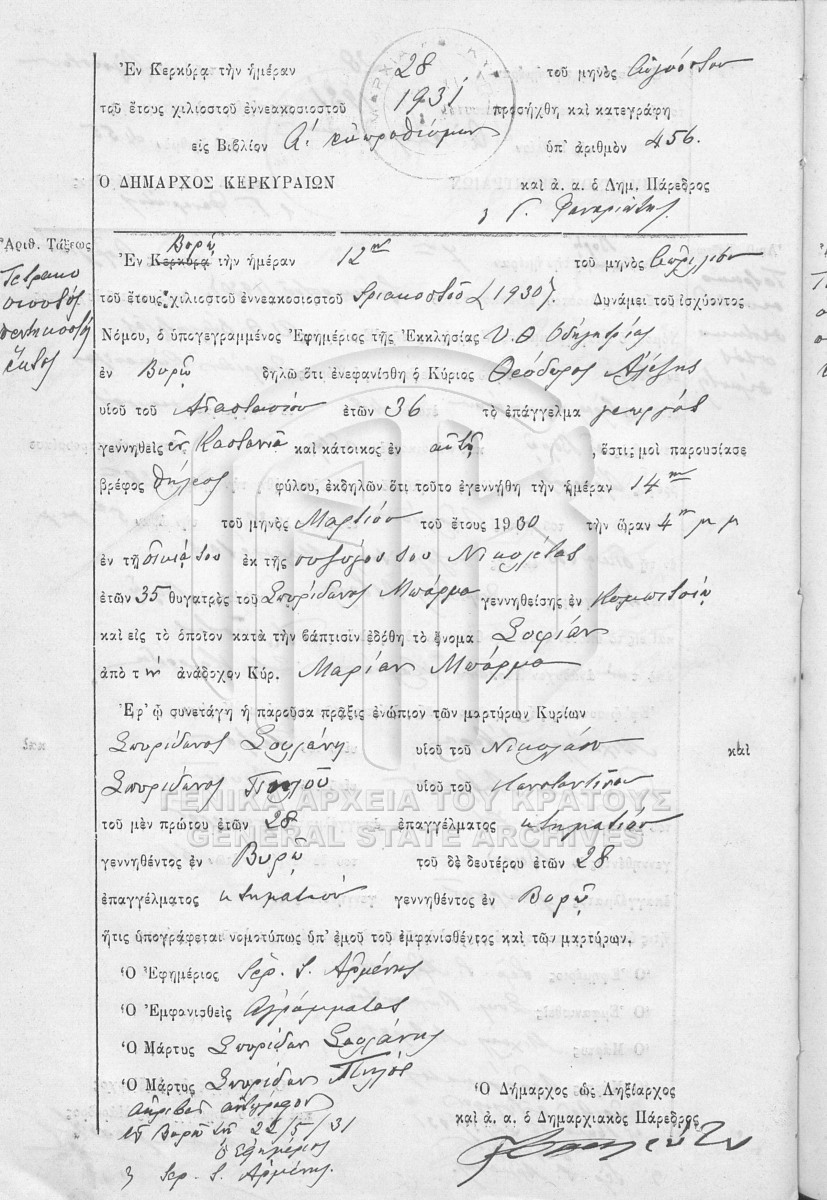 Ἐν Κερκύρᾳ τὴν ἡμέραν 28 τοῦ μηνὸς Αὐγούστου
τοῦ ἔτους χιλιοστοῦ ἐννεακοσιοστοῦ 1931 προσήχθη καὶ κατεγράφη
εἰς Βιβλίον Α΄ ἐκπροθέσμων ὑπ' ἀριθμὸν 456.
Ὁ ΔΗΜΑΡΧΟΣ ΚΕΡΚΥΡΑΙΩΝ καὶ ἀ. α. ὁ Δημ. Πάρεδρος
Γ. Φαναριώτης
Ἀριθ. Τάξεως
Τετρακο
σιοστός
πεντηκοστός
ἕκτος
Βορῷ
Ἐν Κερκύρᾳ τὴν ἡμέραν 12ην τοῦ μηνὸς Ἀπριλίου
τοῦ ἔτους χιλιοστοῦ ἐννεακοσιοστοῦ τριακοστοῦ (1930). Δυνάμει τοῦ ἰσχύοντος
Νόμου, ὁ ὑπογεγραμμένος Ἐφημέριος τῆς Ἐκκλησίας Υ. Θ. Ὁδηγητρίας
ἐν Βορῷ δηλῶ ὅτι ἐνεφανίσθη ὁ Κύριος Θεόδωρος Ἀλέξης
υἱοῦ τοῦ Ἀναστασίου ἐτῶν 36 τὸ ἐπάγγελμα γεωργὸς
γεννηθεὶς ἐν Καστανιᾷ καὶ κάτοικος ἐν αὐτῇ, ὅστις μοὶ παρουσίασε
βρέφος θήλεος φύλου, ἐκδηλῶν ὅτι τοῦτο ἐγεννήθη τὴν ἡμέραν 14ην
τοῦ μηνὸς Μαρτίου τοῦ ἔτους 1930 τὴν ὥραν 4ην μ μ
ἐν τῇ οἰκίᾳ του ἐκ τῆς συζύγου του Νικολέτας
ἐτῶν 35 θυγατρὸς τοῦ Σπυρίδωνος Μπάρμα γεννηθείσης ἐν
καὶ εἰς τὸ ὁποῖον κατὰ τὴν βάπτισιν ἐδόθη τὸ ὄνομα Σοφίαν
ἀπὸ τὴν ἀνάδοχον Κύρ. Μαρίαν Μπάρμα
Ἐφ' ᾧ συνετάγη ἡ παροῦσα πρᾶξις ἐνώπιον τῶν μαρτύρων Κυρίων
Σπυρίδωνος υἱοῦ τοῦ Νικολάου καὶ
Σπυρίδωνος υἱοῦ τοῦ Κωνσταντίνου
ΓΕΝΙΚΑ ΑΡΧΕΙΑ ΤΟΥ ΚΡΑΤΟΥΣ
τοῦ μὲν πρώτου ἐτῶν 28 ἐπαγγέλματος κτηματίου
GENERAL STATE ARCHIVES
γεννηθέντος ἐν Βορῷ τοῦ δὲ δευτέρου ἐτῶν 28
ἐπαγγέλματος κτηματίου γεννηθέντος ἐν Βορῷ
ἥτις ὑπογράφεται νομοτύπως ὑπ' ἐμοῦ τοῦ ἐμφανισθέντος καὶ τῶν μαρτύρων.
Ὁ Ἐφημέριος Ἱερ. Σ. Ἀρμένης
Ὁ Ἐμφανισθεὶς Ἀγράμματος
Ὁ Μάρτυς Σπυρίδων
Ὁ Μάρτυς Σπυρίδων
Ὁ Δήμαρχος ὡς Ληξίαρχος
ἀκριβὲς ἀντίγραφον
καὶ ἀ. α. ὁ Δημαρχιακὸς Πάρεδρος
ἐν Βορῷ τῇ 22/5/31
ὁ Ἐφημέριος
Ἱερ. Σ. Ἀρμένης